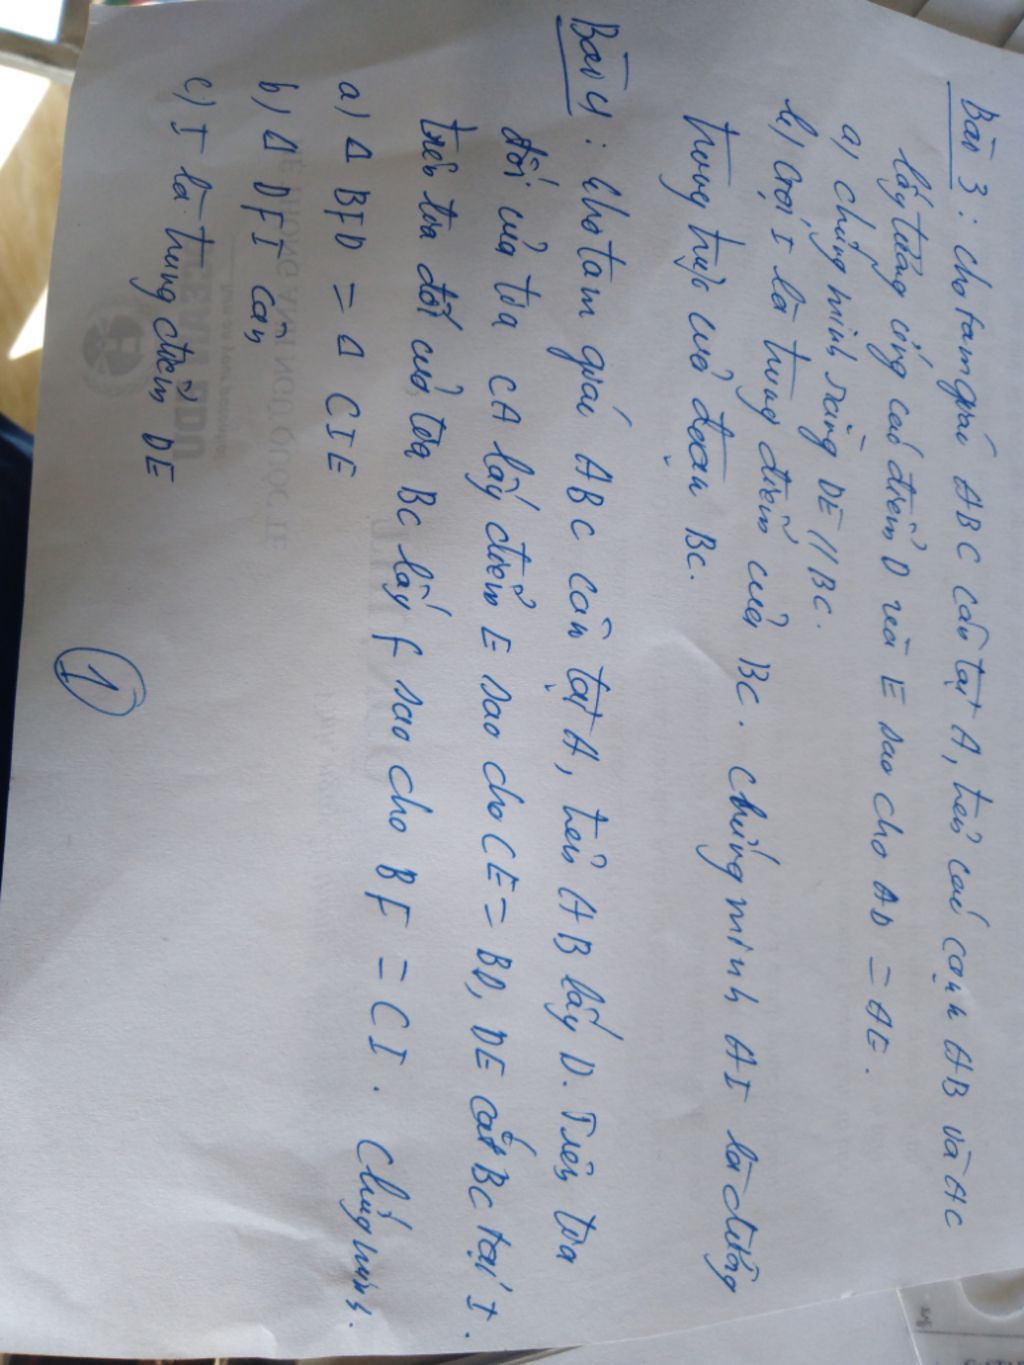 Bài 3: cho tam giác ABC cân tại A, trên các cạnh AB và AC
lấy tương ứng các điểm D và E sao cho AD = AE.
a) chứng minh rằng DE // BC.
b) Gọi I là trung điểm của BC. Chứng minh AI là đường
trung trực của đoạn BC.
Bài 4: Cho tam giác ABC cân tại A, trên AB lấy D. Trên tia
đối của tia CA lấy điểm E sao cho CE = BD, DE cắt BC tại I.
Trên tia đối của tia BC lấy F sao cho BF = CI. Chứng minh.
a) Δ BFD = Δ CIE
b) Δ DFI cân
c) I là trung điểm DE
1